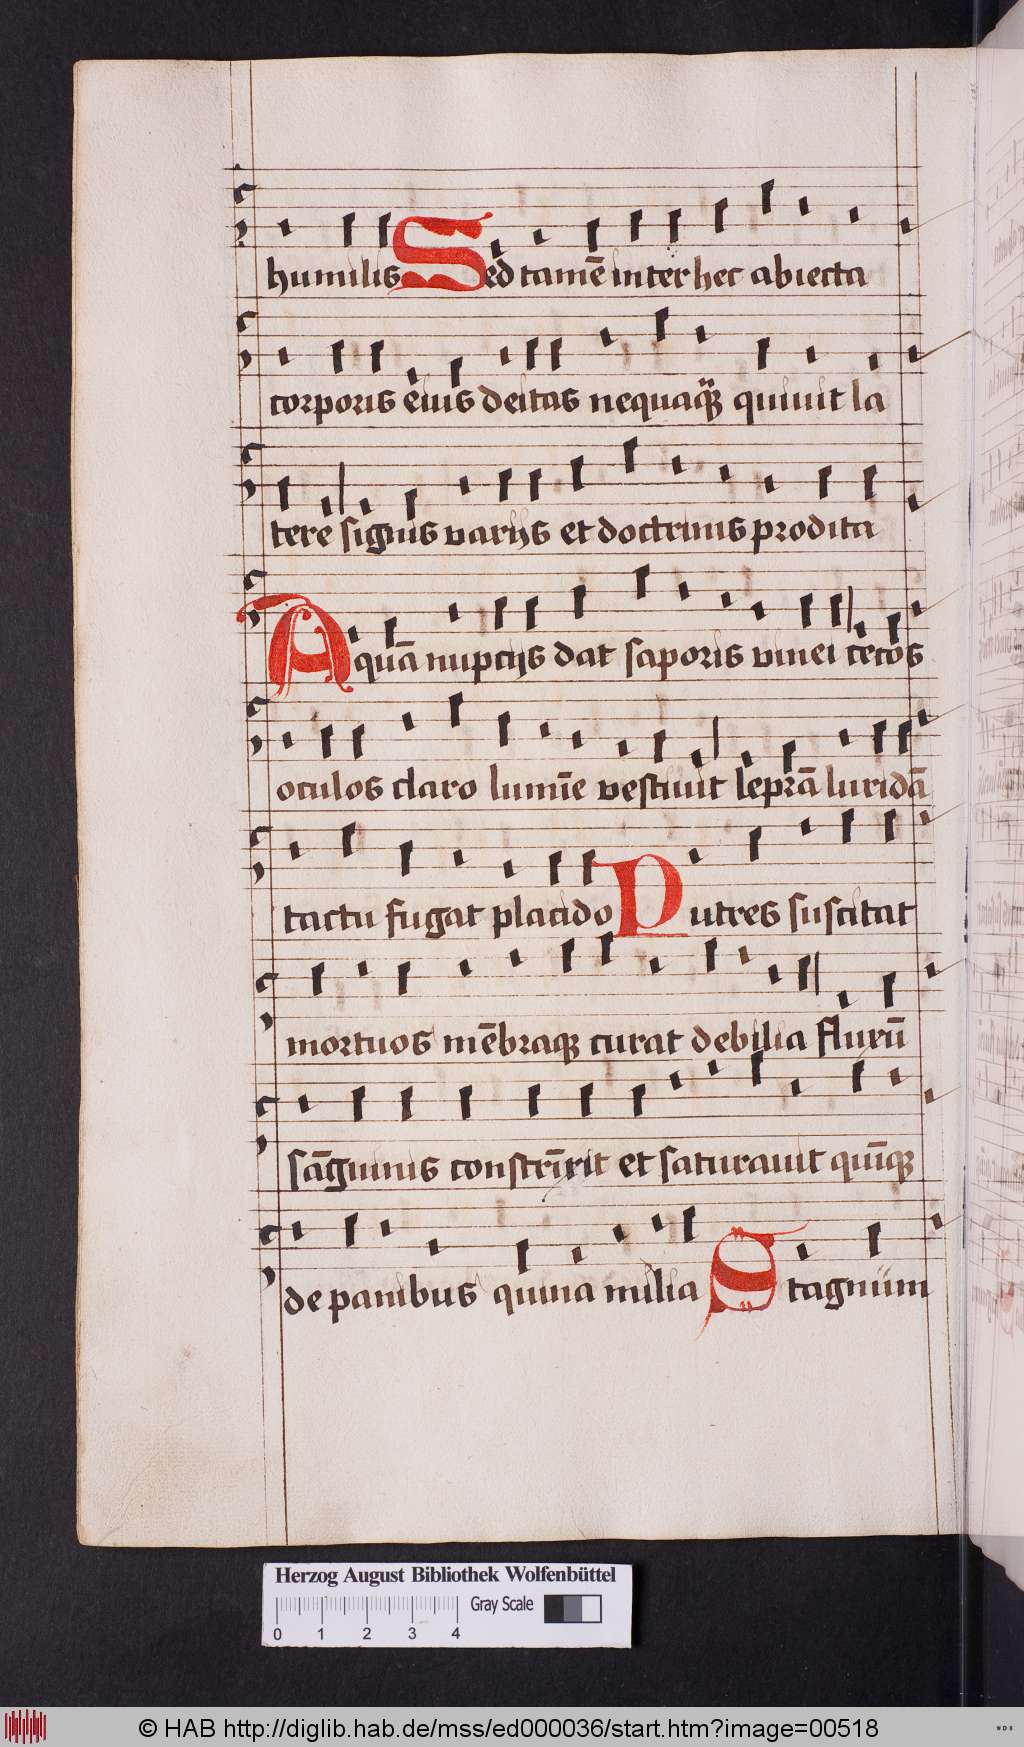 humilis Sed tamē inter hec abiecta
corporis eius deitas nequaqᷓ quiuit la
tere signis varijs et doctrinis prodita
Aquā nuptijs dat saporis vinei cecos
oculos claro lumīe vestiuitleprā luridā
tactu fugat placido Putres suscitat
mortuos mēbraqꝫ curat debilia fluxū
sāguinis constrīxit et saturauit quīqꝫ
de panibus quina milia Stagnum
Herzog August Bibliothek Wolfenbüttel
Gray Scale
0 1 2 3 4
© HAB http://diglib.hab.de/mss/ed000036/start.htm?image=00518